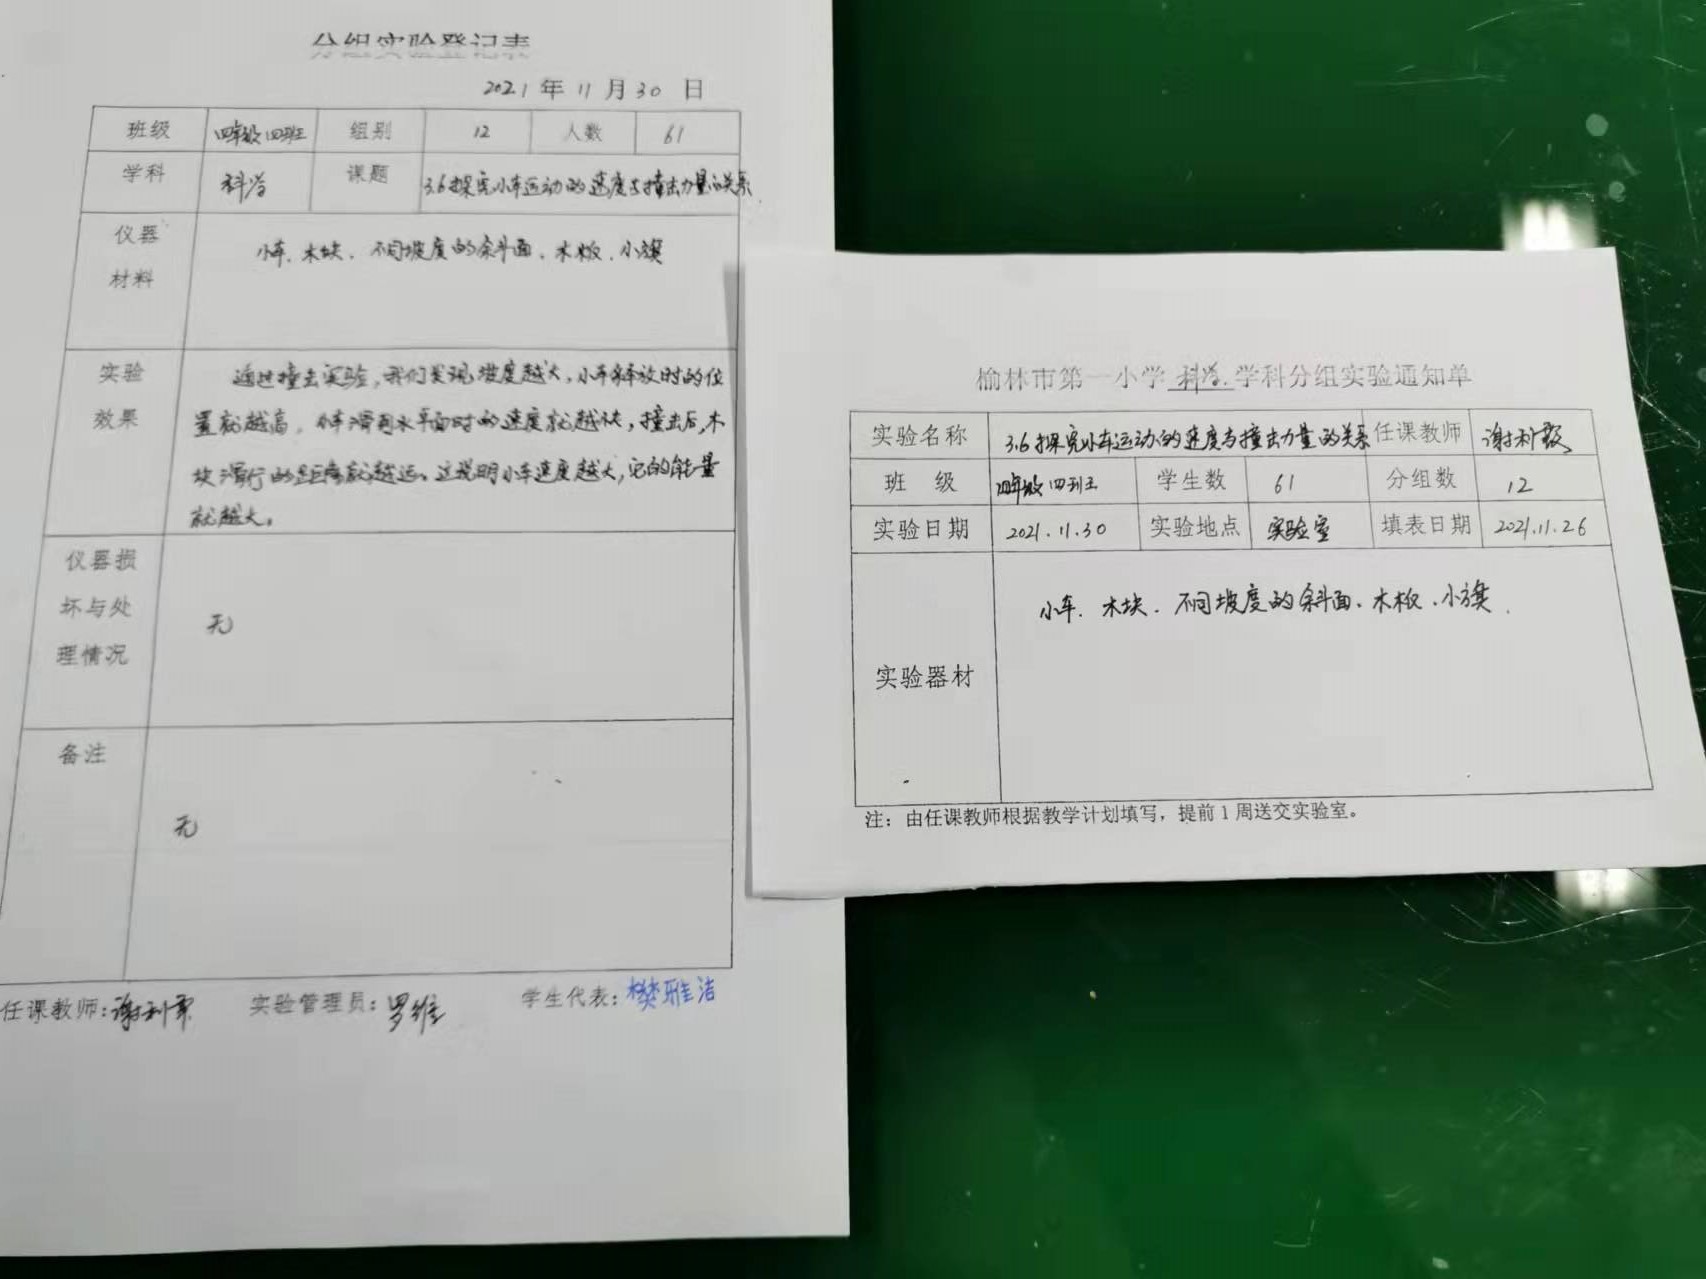 分组实验登记表
2021 年 11 月 30 日
班级 四年级四班 组别 12 人数 61
学科 科学 课题 3.6探究小车运动的速度与撞击力量的关系
仪器 小车、木块、不同坡度的斜面、木板、小旗
材料
实验 通过撞击实验,我们发现坡度越大,小车释放时的位
效果 置就越高,小车滑到水平面时的速度就越快,撞击后,木
块滑行的距离就越远。这说明小车速度越大,它的能量
就越大。
仪器损
坏与处 无
理情况
备注
无
任课教师: 谢利 实验管理员: 罗维 学生代表: 樊雅洁
榆林市第一小学 科学 学科分组实验通知单
实验名称 3.6探究小车运动的速度与撞击力量的关系 任课教师 谢利
班 级 四年级四班 学生数 61 分组数 12
实验日期 2021.11.30 实验地点 实验室 填表日期 2021.11.26
小车、木块、不同坡度的斜面、木板、小旗.
实验器材
注:由任课教师根据教学计划填写,提前1周送交实验室。